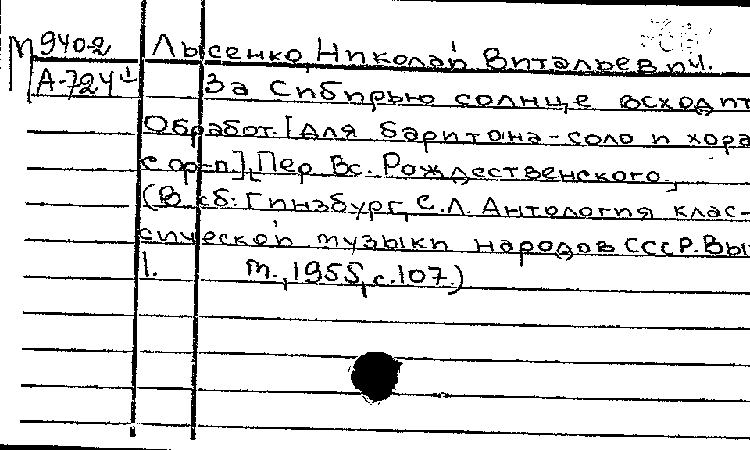 М 9402 Лысенко, Николай Витальевич.
А-724¹ За Сибирью солнце всходит
Обработ. [для баритона-соло и хора
с ор-п]. Пер. Вс. Рождественского,
(В сб: Гинзбург, С.Л. Антология клас-
сической музыки народов СССР. Вы
1. М., 1955, с. 107.)